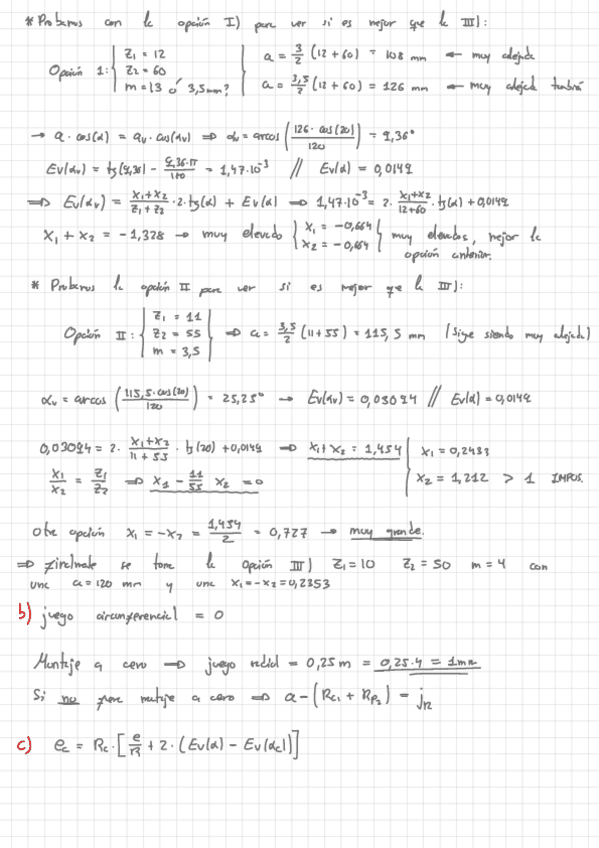 * Probamos con la opción I) para ver si es mejor que la III):
Opción 1: { Z₁ = 12 Z₂ = 60 m = 13 ó 3,5mm? } { a = 3/2 (12 + 60) = 108 mm ← muy alejada
a = 3,5/2 (12 + 60) = 126 mm ← muy alejada también
→ a · cos(α) = aᵥ · cos(αᵥ) ⇒ αᵥ = arcos (126 · cos(20)/120) = 9,36°
Ev(αᵥ) = tg(9,36) - 9,36·π/180 = 1,47·10⁻³ // Ev(α) = 0,0149
⇒ Ev(αᵥ) = X₁+X₂/Z₁+Z₂ · 2 · tg(α) + Ev(α) ⇒ 1,47·10⁻³ = 2 · X₁+X₂/12+60 · tg(α) + 0,0149
X₁ + X₂ = -1,328 → muy elevado { X₁ = -0,664 X₂ = -0,664 } muy elevados, mejor la
opción anterior.
* Probamos la opción II para ver si es mejor que la III):
Opción II: { Z₁ = 11 Z₂ = 55 m = 3,5 } ⇒ a = 3,5/2 (11 + 55) = 115,5 mm (Sigue siendo muy alejada)
αᵥ = arcos (115,5 · cos(20)/120) = 25,25° → Ev(αᵥ) = 0,03094 // Ev(α) = 0,0149
0,03094 = 2 · X₁+X₂/11+55 · tg(20) + 0,0149 ⇒ X₁+X₂ = 1,454 { X₁ = 0,2433
X₁/X₂ = Z₁/Z₂ ⇒ X₁ - 11/55 X₂ = 0 X₂ = 1,212 > 1 IMPOS.
Otra opción X₁ = -X₂ = 1,454/2 = 0,727 → muy grande.
⇒ finalmente se toma la Opción III) Z₁ = 10 Z₂ = 50 m = 4 con
una a = 120 mm y una X₁ = -X₂ = 0,2353
b) juego circunferencial = 0
Montaje a cero ⇒ juego radial = 0,25 m = 0,25·4 = 1mm
Si no fuera montaje a cero ⇒ a - (Rc₁ + Rp₂) = jR
c) ec = Rc · [e/R + 2 · (Ev(α) - Ev(αc))]